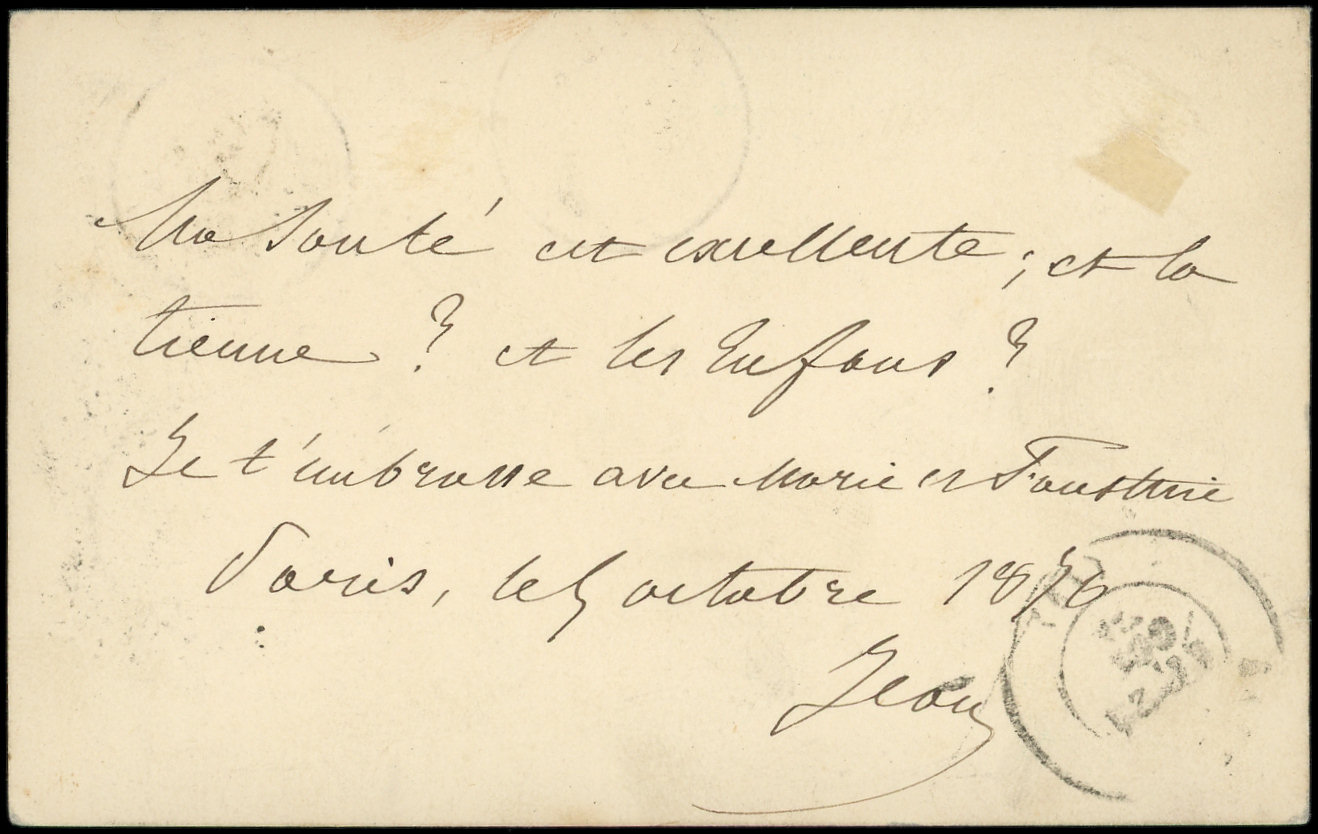 Ma santé est excellente ; et la
tienne ? et les Enfans ?
Je t'embrasse avec Marie et Faustine
Paris, le 5 octobre 1876
Jean